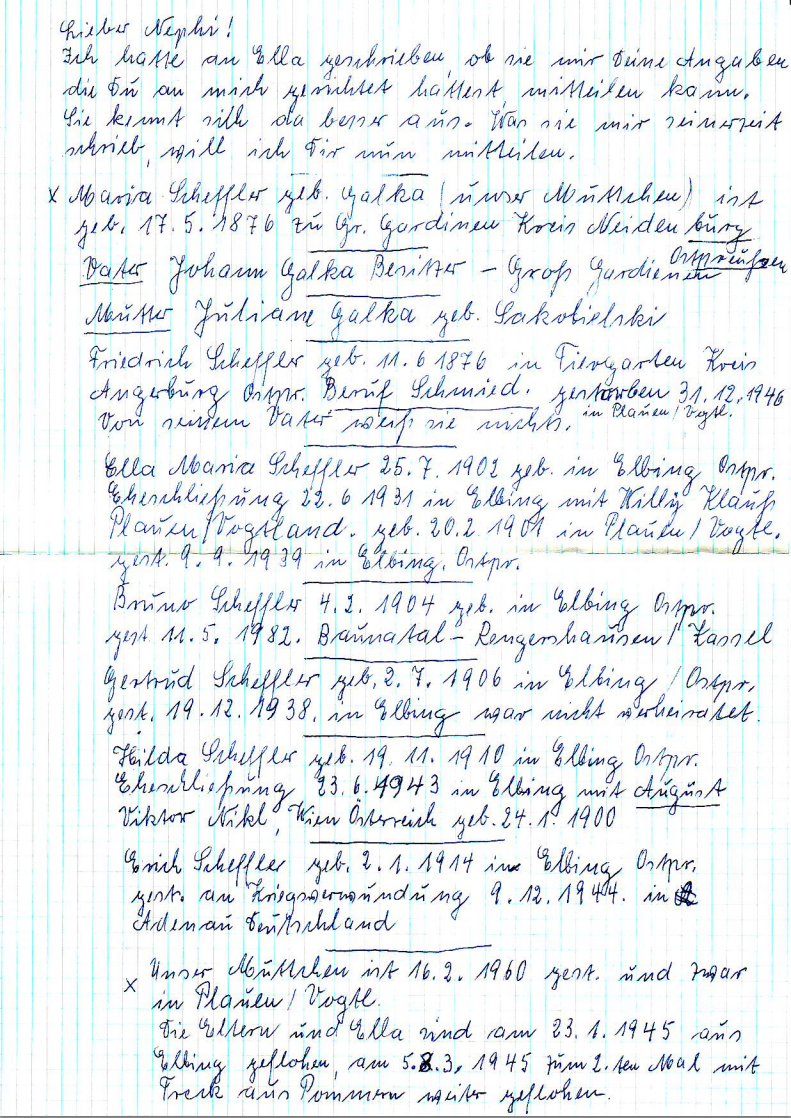 Lieber Nephi!
Ich hatte an Ella geschrieben, ob sie mir Deine Angaben
die Du an mich gerichtet hattest, mitteilen kann.
Sie kennt sich da besser aus. Was sie mir seinerzeit
schrieb, will ich Dir nun mitteilen.
x Maria Scheffler geb. Galka (unser Muttchen) ist
geb. 17.5.1876 zu Gr. Gardinen Kreis Neidenburg
Ostpreußen
Vater Johann Galka Besitzer – Groß Gardienen
Mutter Juliane Galka geb. Sakobielski
Friedrich Scheffler geb. 11.6 1876 in Tiergarten Kreis
Angerburg Ostpr. Beruf Schmied. gestorben 31.12.1946
in Plauen/Vogtl.
Von seinem Vater weiß sie nichts.
Ella Maria Scheffler 25.7.1902 geb. in Elbing Ostpr.
Eheschließung 22.6 1931 in Elbing mit Willy Klauß
Plauen/Vogtland. geb. 20.2.1901 in Plauen/Vogtl.
gest. 9.9.1939 in Elbing. Ostpr.
Bruno Scheffler 4.2.1904 geb. in Elbing Ostpr.
gest 11.5.1982. Baunatal – Rengershausen/Kassel
Gertrud Scheffler geb. 2.7.1906 in Elbing / Ostpr.
gest. 19.12.1938. in Elbing war nicht verheiratet.
Hilda Scheffler geb. 19.11.1910 in Elbing Ostpr.
Eheschließung 23.6.1943 in Elbing mit August
Viktor Nikl, Wien Österreich geb. 24.1.1900
Erich Scheffler geb. 2.1.1914 in Elbing Ostpr.
gest. an Kriegsverwundung 9.12.1944. in
Adenau Deutschland
x Unser Muttchen ist 16.2.1960 gest. und zwar
in Plauen/Vogtl.
Die Eltern und Ella sind am 23.1.1945 aus
Elbing geflohen, am 5.8.3.1945 zum 2.ten Mal mit
Treck aus Pommern weiter geflohen.